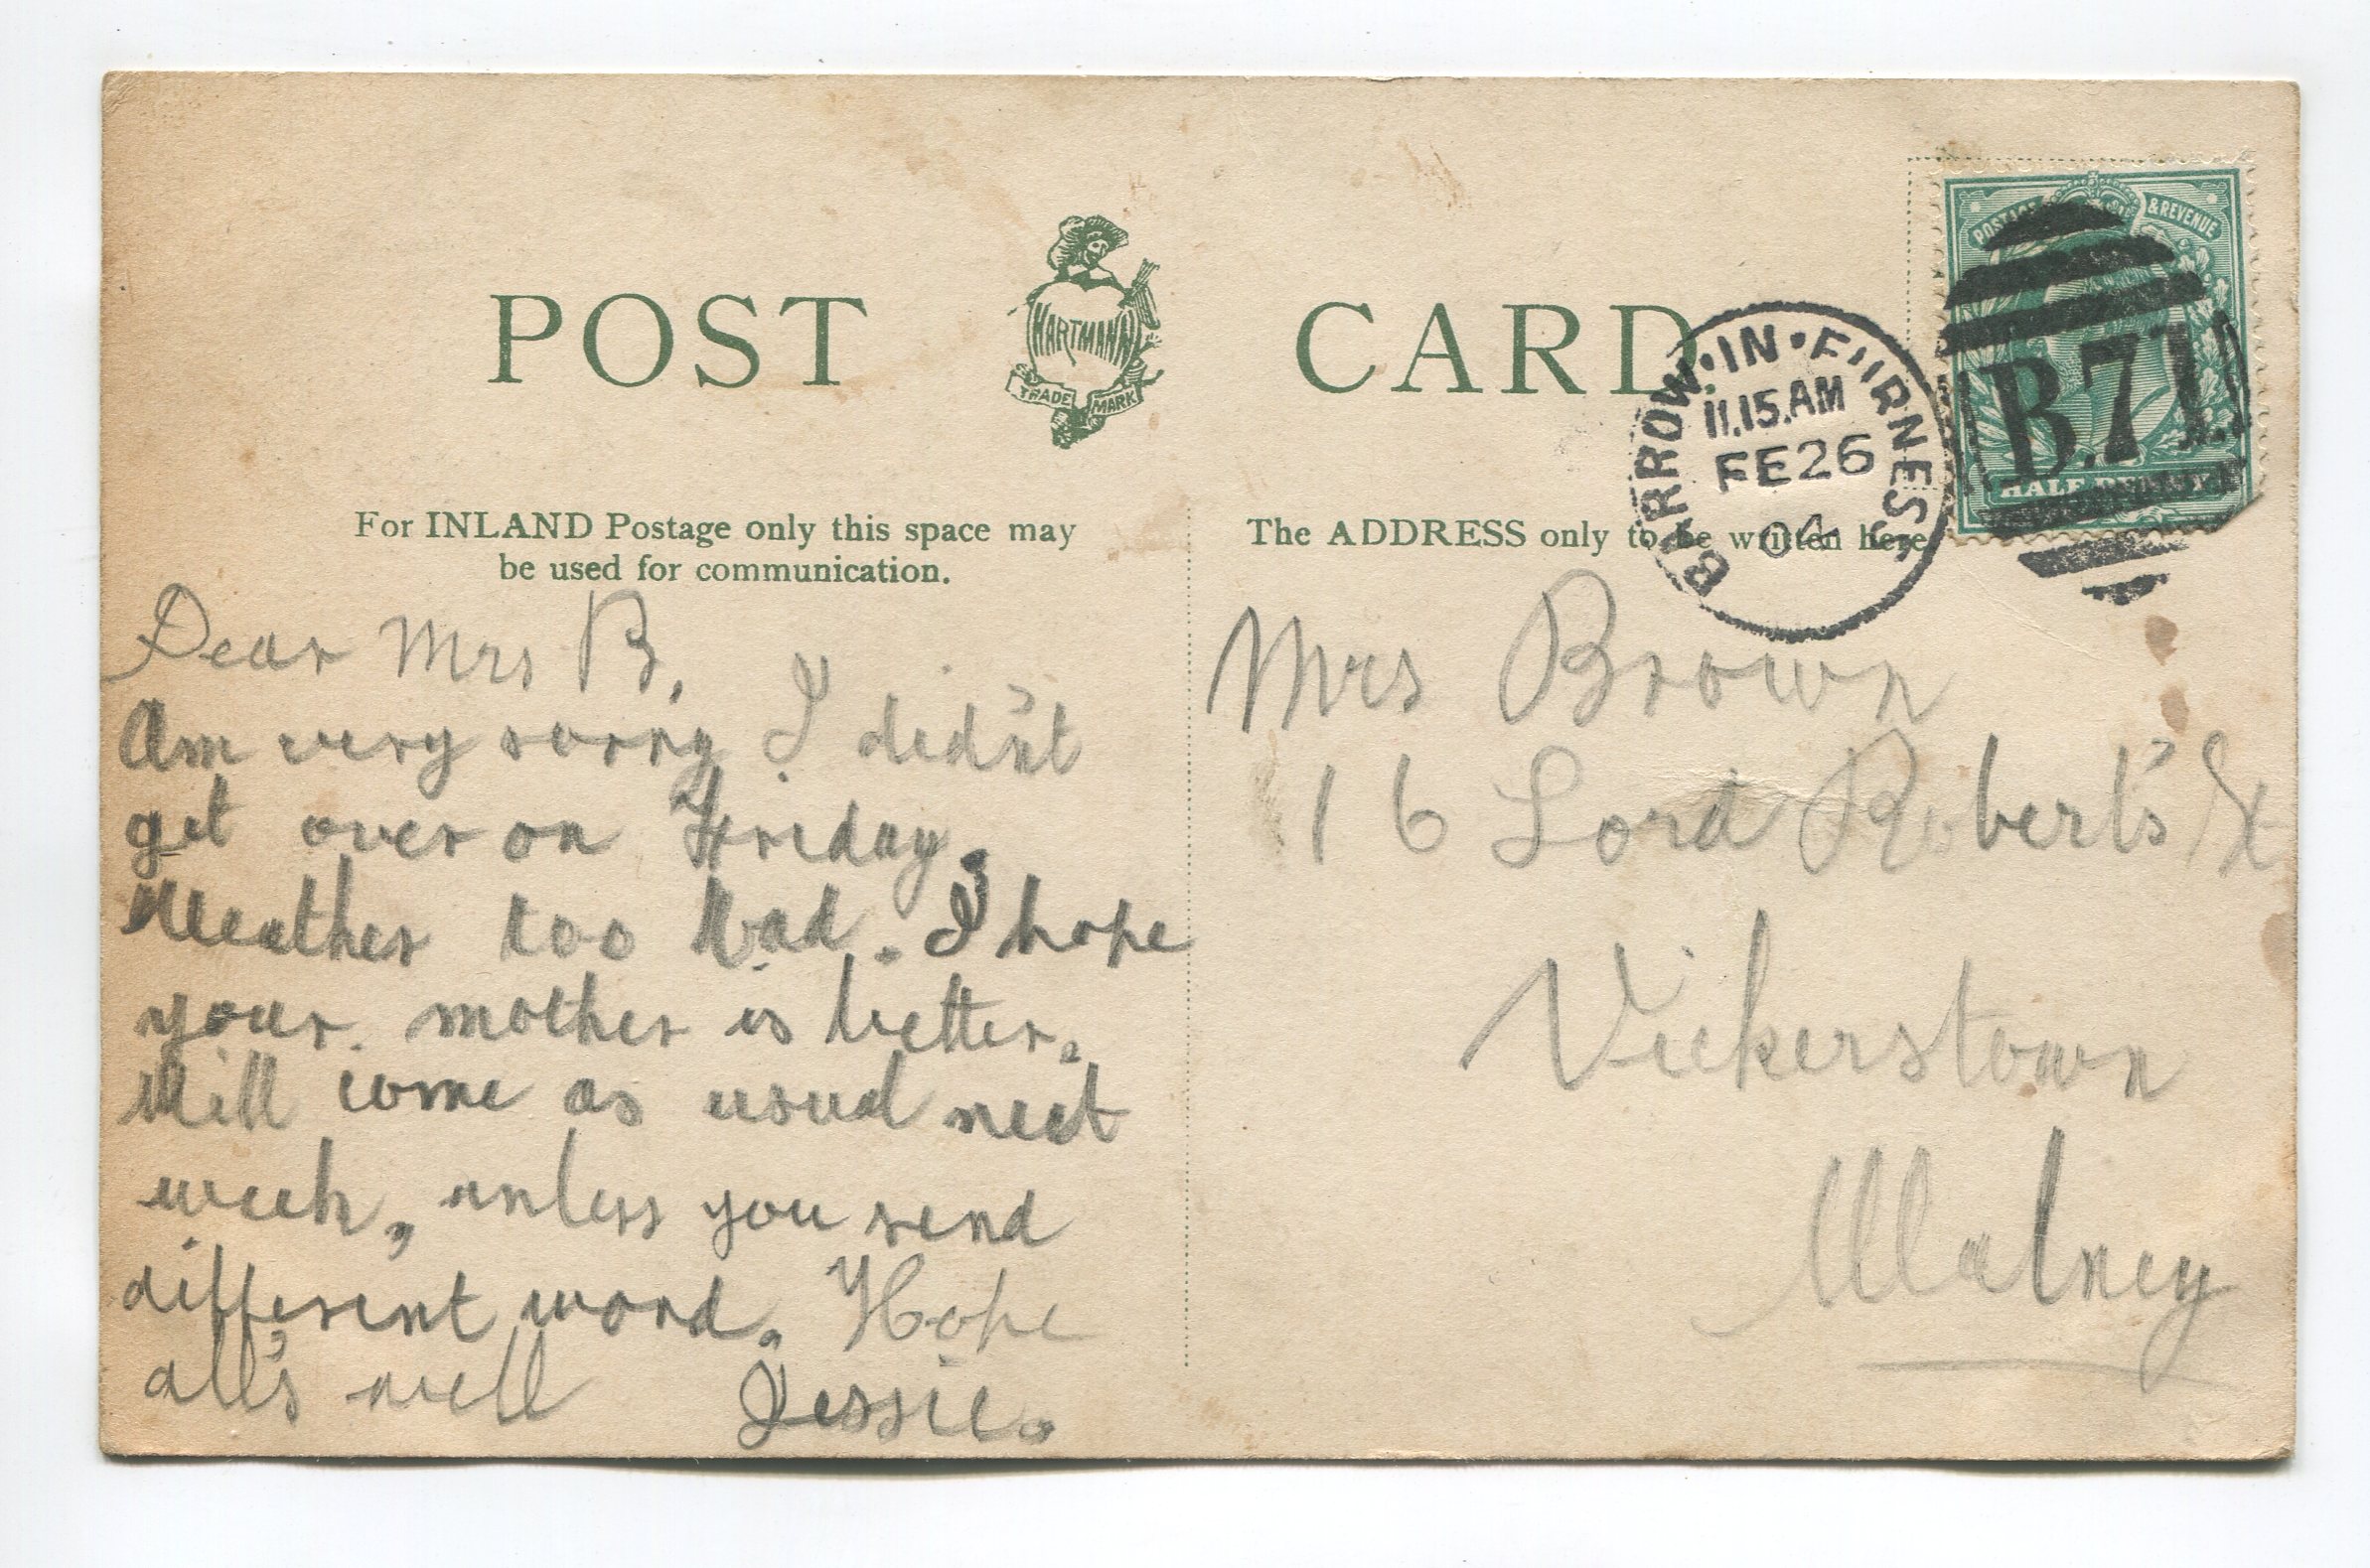 POST CARD
HARTMANN
TRADE MARK
POSTAGE & REVENUE
B.71
BARROW·IN·FURNESS
11.15.AM
FE26
04
For INLAND Postage only this space may
be used for communication.
The ADDRESS only to be written here
Dear Mrs B,
Am very sorry I did'nt
get over on Friday,
Weather too bad. I hope
your mother is better.
Will come as usual next
week, unless you send
different word. Hope
all's well Jessie.
Mrs Brown
16 Lord Robert's St
Vickerstown
Walney